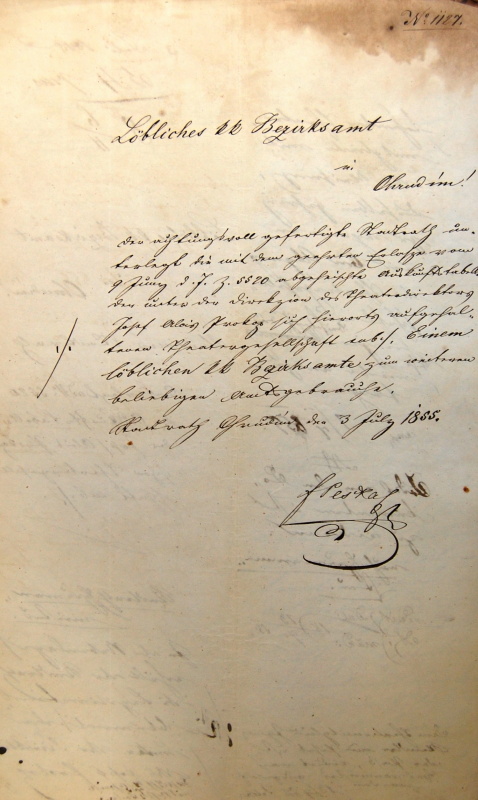 No 1127.
Löbliches kk Bezirksamt
in
Chrudim!
Der achtungsvoll gefertigte Stadtrath un-
terlegt die mit dem geehrten Erlasse vom
9 Juny d. J. Z. 5520 abgeheischte Auskunftstabelle
der unter der Direkzion des Theaterdirektors
Josef Alois Prokop sich hierorts aufgehal-
tenen Theatergesellschaft sub ./. Einem
löblichen kk Bezirksamte zum weiteren
beliebigen Amtsgebrauche.
Stadtrath Chrudim den 3 July 1855.